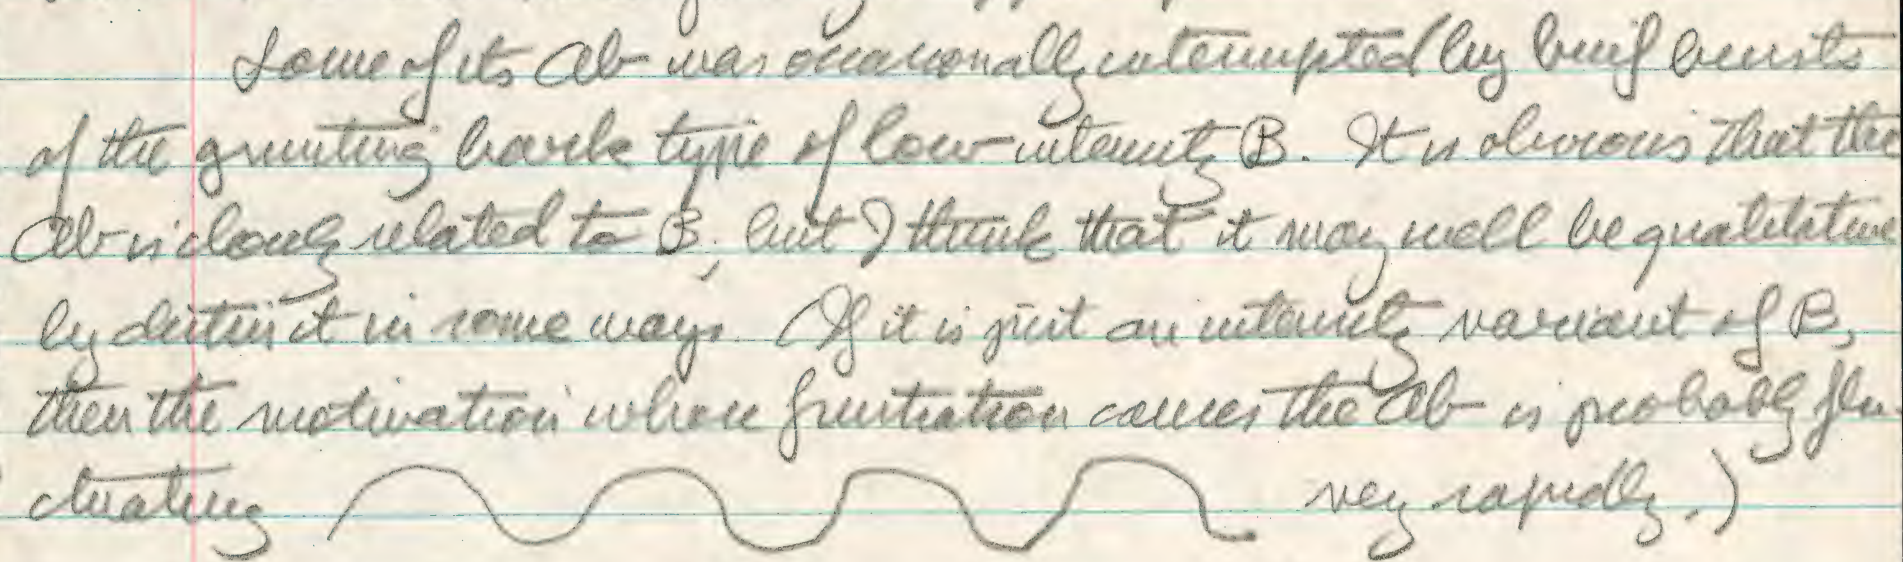 Some of its Ab was occasionally interrupted (by brief bursts
of the grunting bark type of low-intensity B. It is obvious that the
Ab is closely related to B, but I think that it may well be qualitative
ly distinct in some ways. (If it is just an intensity variant of B,
then the motivation whose frustration causes the Ab is probably flu
ctuating very rapidly.)